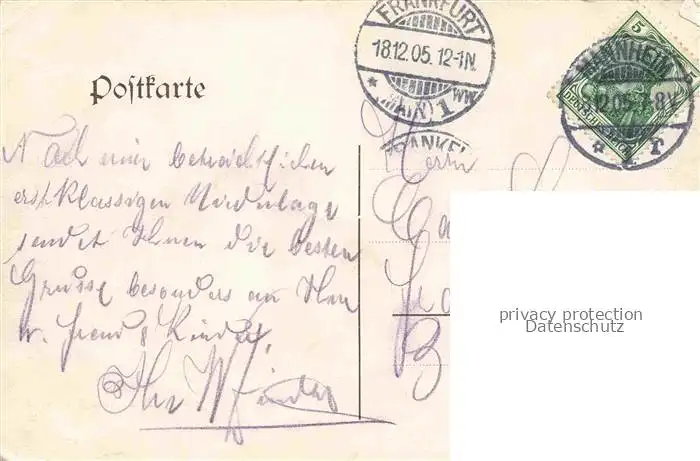 FRANKFURT
18.12.05. 12-1N.
(MAIN) 1 WW
5
MANNHEIM
12.05. 7-8V
1
DEUTSCHES REICH
FRANKFU
Postkarte
Herrn
Nach einer beträchtlichen
erstklassigen Niederlage
sendet Ihnen die besten
Grüsse besonders an Ihre
w. Frau & Kinder,
Ihr
privacy protection
Datenschutz